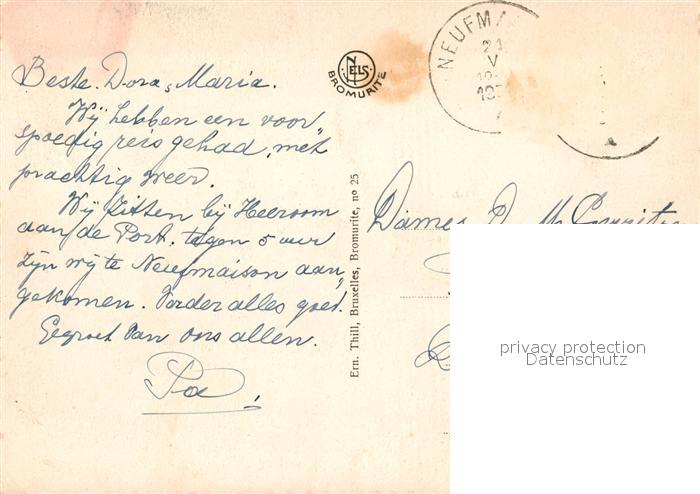 Beste Dora, Maria.
Wij hebben een voor
spoedig reis gehad, met
prachtig weer.
Wij zitten bij Heeroom
aan de Port. tegen 5 uur
zijn wij te Neufmaison aan,,
gekomen. Verder alles goed.
Gegroet van ons allen.
Pa
NELS
BROMURITE
Ern. Thill, Bruxelles, Bromurite, nº 25
NEUFMA
21
V
Dames D. M.
privacy protection
Datenschutz